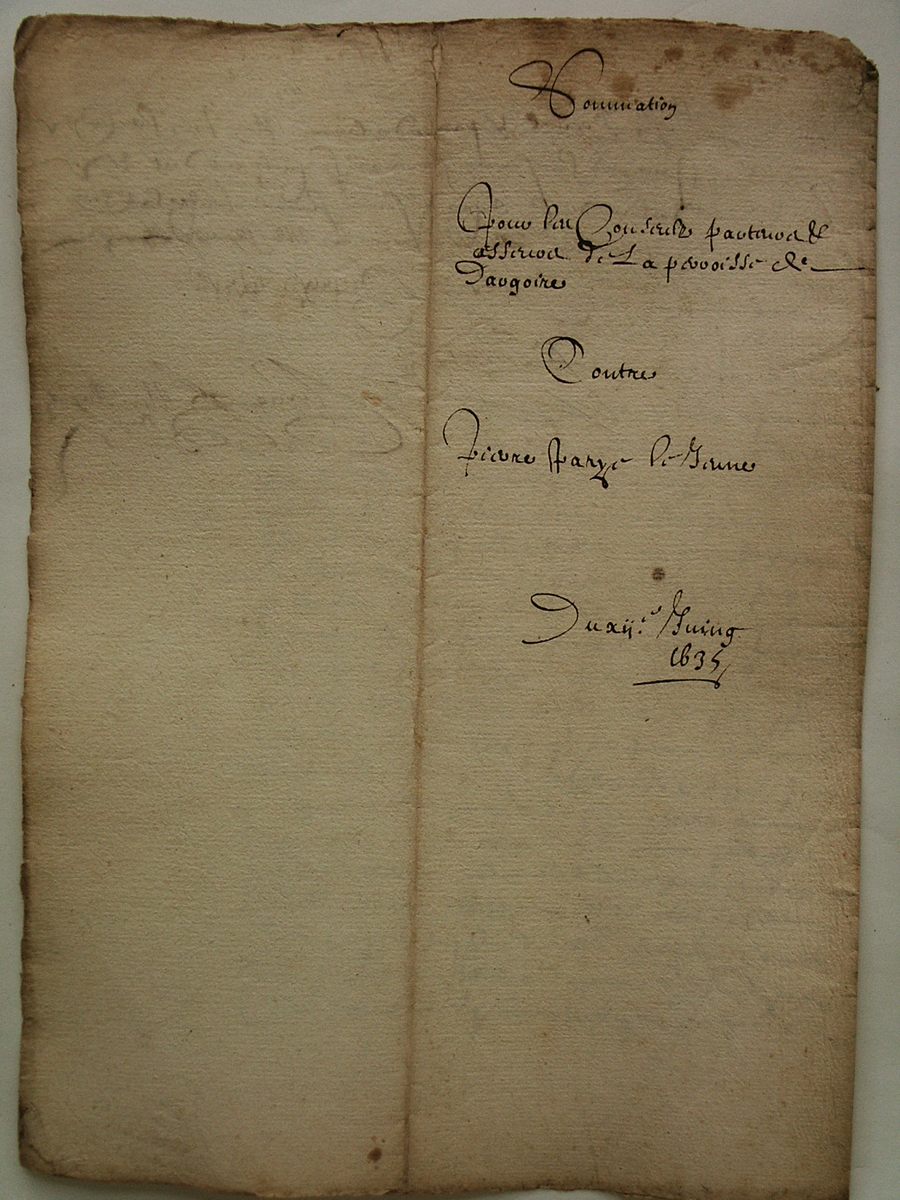 Sommation
pour les Consulz parteurs &
asseeurs de La parroisse de
Daugoire
Contre
pierre le Jeune
Du xije Juing
1635